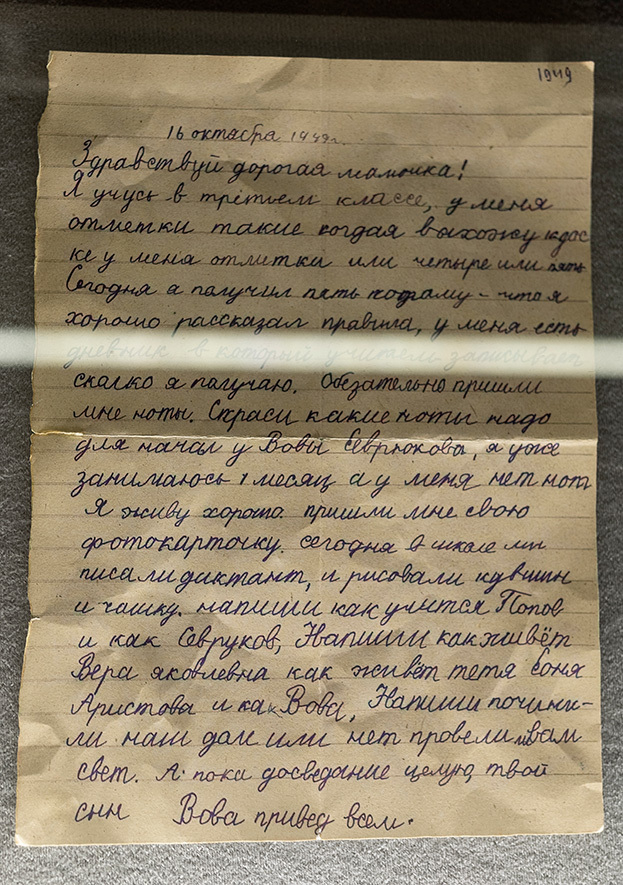 1949
16 октабра 1949г.
Здравствуй дорогая мамочка!
Я учусь в третьем классе, у меня
отметки такие когдая выхожу кдос
ке у меня отметки или четыре или пять
Сегодня я палучил пять потаму-что я
хорошо рассказал правила, у меня есть
дневник в который учитель записывает
сколко я палучаю. Обезательно пришли
мне ноты. Спраси какие ноты надо
для начал у Вовы Севрюковы, я уже
занимаюсь 1 месяц а у меня нет нот
Я живу хорошо пришли мне свою
фотокарточку. сегодня в школе мы
писали диктант, и рисовали кувшин
и чашку. напиши как учится Попов
и как Севруков, Напиши как живёт
Вера яковлевна как живёт тетя Соня
Аристова и как Вова, Напиши почини-
ли наш дом или нет провели вам
свет. А пока досведание целую, твой
сын Вова привед всем.